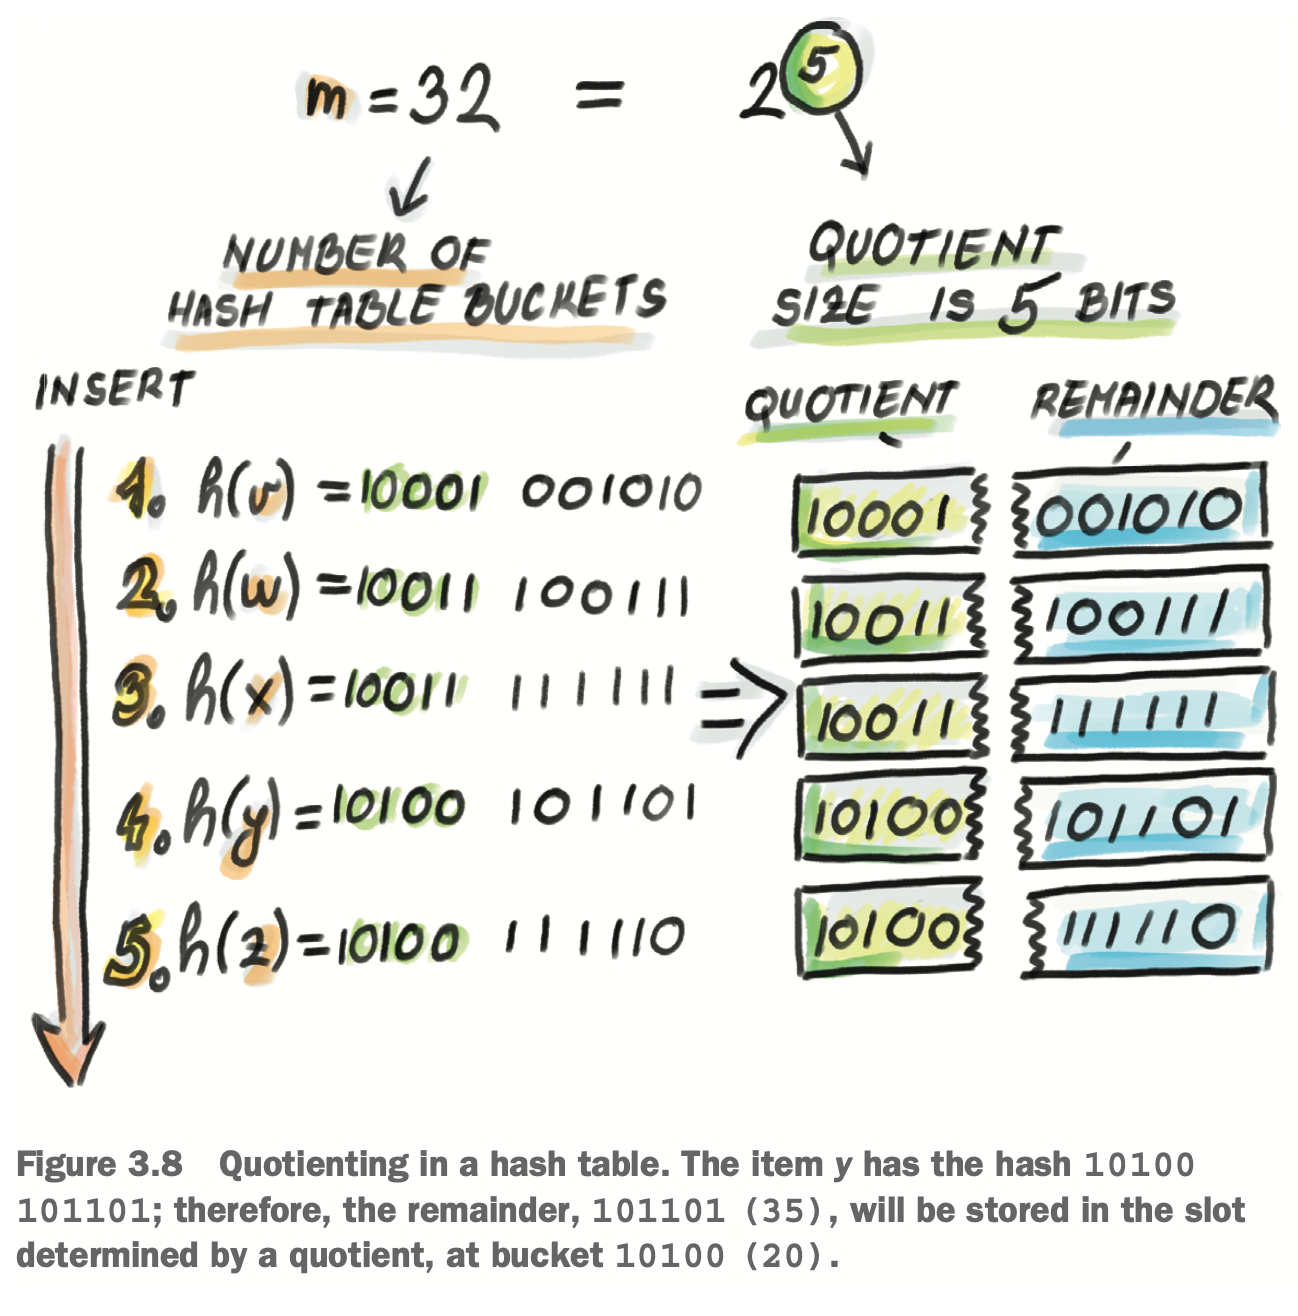 m = 32 = 2⁵
NUMBER OF
HASH TABLE BUCKETS
QUOTIENT
SIZE IS 5 BITS
INSERT
QUOTIENT REMAINDER
1. h(v) = 10001 001010
2. h(w) = 10011 100111
3. h(x) = 10011 111111
4. h(y) = 10100 101101
5. h(z) = 10100 111110
10001 001010
10011 100111
10011 111111
10100 101101
10100 111110
Figure 3.8 Quotienting in a hash table. The item y has the hash 10100
101101; therefore, the remainder, 101101 (35), will be stored in the slot
determined by a quotient, at bucket 10100 (20).